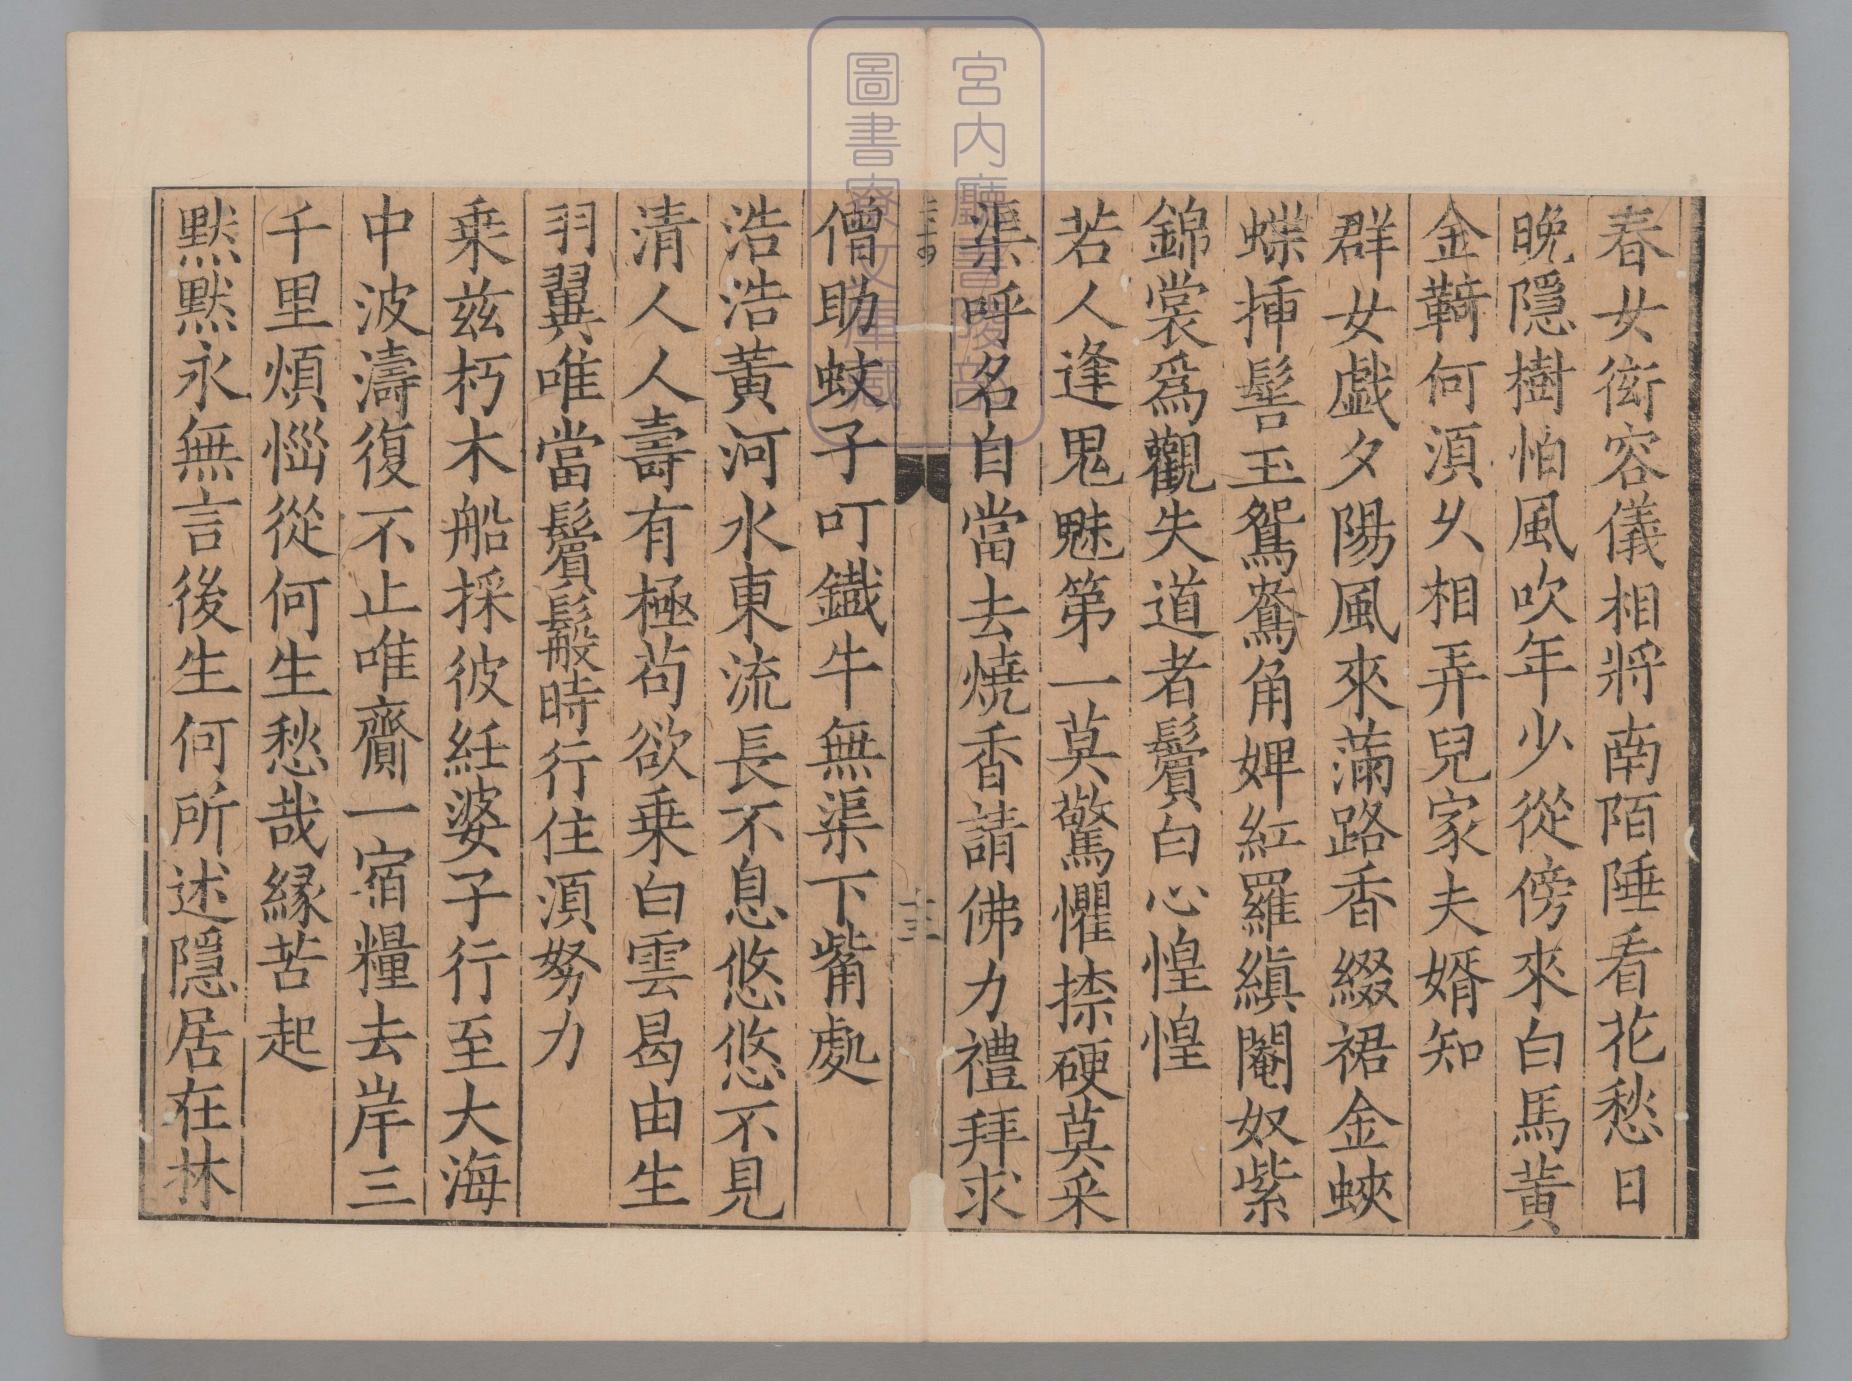 春女衒容儀相將南陌陲看花愁日
晚隱樹怕風吹年少從傍來白馬黄
金鞿何湏久相弄兒家夫婿知
群女戯夕陽風來滿路香綴裙金蛺
蝶揷髻玉鴛鴦角婢紅羅縝閹奴紫
錦裳爲觀失道者鬢白心惶惶
若人逢鬼魅第一莫驚懼捺硬莫采
渠呼名自當去燒香請佛力禮拜求
僧助蚊子叮鐵牛無渠下觜處
浩浩黄河水東流長不息悠悠不見
清人人壽有極茍欲乗白雲曷由生
羽翼唯當鬢髮時行住湏努力
乗兹朽木船採彼紝婆子行至大海
中波濤復不止唯齎一宿糧去岸三
千里煩惱從何生愁哉縁苦起
默默永無言後生何所述隱居在林
十三
宮内廳書陵部
圖書寮文庫蔵